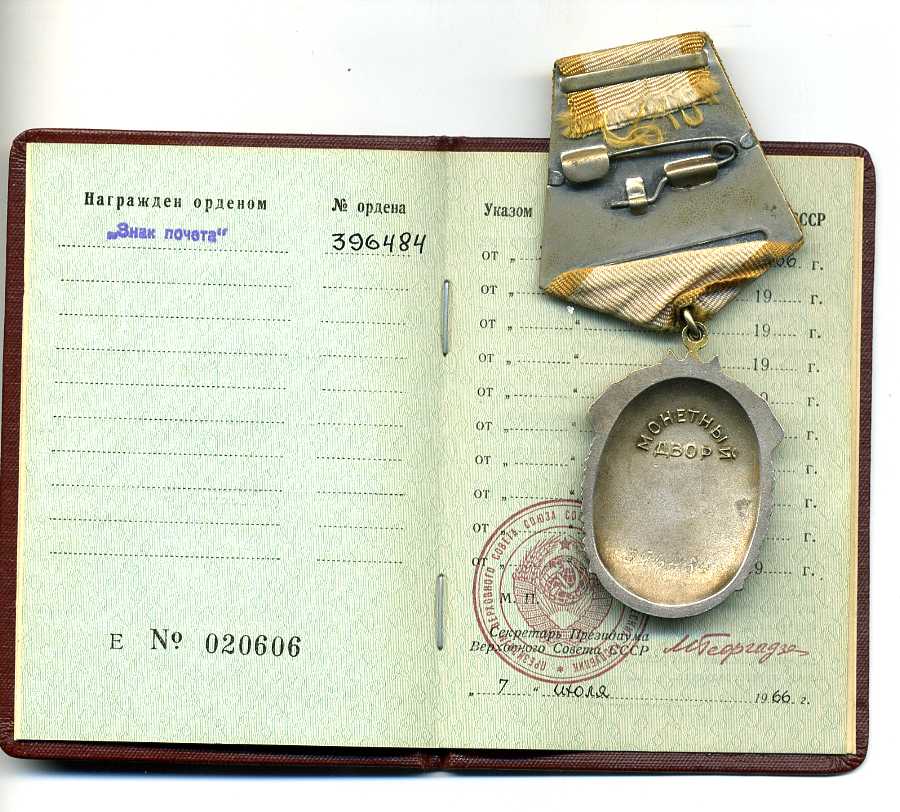 Награжден орденом
№ ордена
„Знак почета“
396484
Е № 020606
Указом СССР
от „ 66 г.
от „ 19 г.
от „ “ 19 г.
от „ “ 19 г.
от „ “ г.
от „ “ г.
от „ “ г.
от „ “ г.
от „ г.
от „ 9 г.
М. П.
Секретарь Президиума
Верховного Совета СССР
М Георгадзе
„ 7 “ июля 1966 г.
ВЕРХОВНОГО СОВЕТА СОЮЗА
МОНЕТНЫЙ
ДВОР